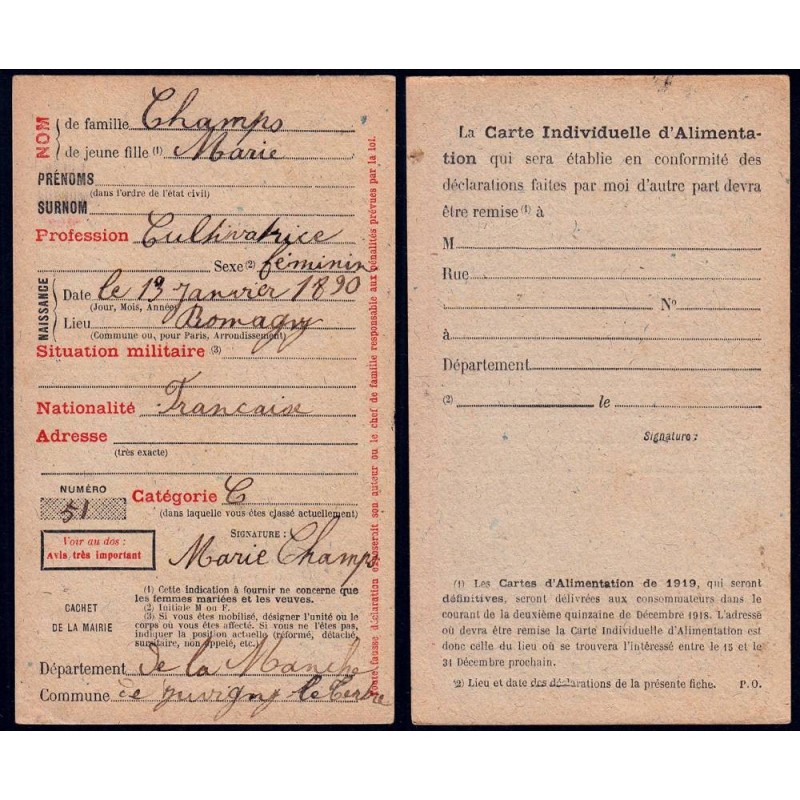 NOM
de famille Champs
de jeune fille (1) Marie
PRÉNOMS
(dans l'ordre de l'état civil)
SURNOM
Profession Cultivatrice
Sexe (2) féminin
NAISSANCE
Date le 19 Janvier 1890
(Jour, Mois, Année)
Lieu Romagny
(Commune ou, pour Paris, Arrondissement)
Situation militaire (3)
Nationalité Francaise
Adresse
(très exacte)
NUMÉRO
51
Catégorie C
(dans laquelle vous êtes classé actuellement)
Voir au dos :
Avis très important
SIGNATURE :
Marie Champs
CACHET
DE LA MAIRIE
(1) Cette indication à fournir ne concerne que
les femmes mariées et les veuves.
(2) Initiale M ou F.
(3) Si vous êtes mobilisé, désigner l'unité ou le
corps où vous êtes affecté. Si vous ne l'êtes pas,
indiquer la position actuelle (réformé, détaché,
sursitaire, non appelé, etc.)
Département de la Manche
Commune de Juvigny-le-Tertre
Toute fausse déclaration exposerait son auteur ou le chef de famille responsable aux pénalités prévues par la loi.
La Carte Individuelle d'Alimenta-
tion qui sera établie en conformité des
déclarations faites par moi d'autre part devra
être remise (1) à
M
Rue
N°
à
Département
(2) le
Signature :
(1) Les Cartes d'Alimentation de 1919, qui seront
définitives, seront délivrées aux consommateurs dans le
courant de la deuxième quinzaine de Décembre 1918. L'adresse
où devra être remise la Carte Individuelle d'Alimentation est
donc celle du lieu où se trouvera l'intéressé entre le 15 et le
31 Décembre prochain.
(2) Lieu et date des déclarations de la présente fiche. P. O.